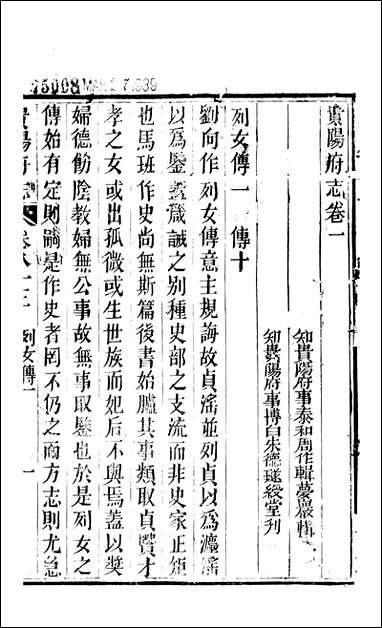 75008 MAR 7 1939
貴陽府志卷一
知貴陽府事泰和周作輯夢巖輯
知貴陽府事博白朱德璲綬堂刊
列女傳一 傳十
劉向作列女傳意主規誨故貞淫並列貞以爲淫
以爲鑒箴誡之别種史部之支流而非史家正矩
也馬班作史尚無斯篇後書始臚其事類取貞賢才
孝之女或出孤微或生世族而妃后不與焉蓋以奬
婦德飭陰教婦無公事故無事取鑒也於是列女之
傳始有定則嗣是作史者罔不仍之而方志則尤急
貴陽府志
列女傳一
一